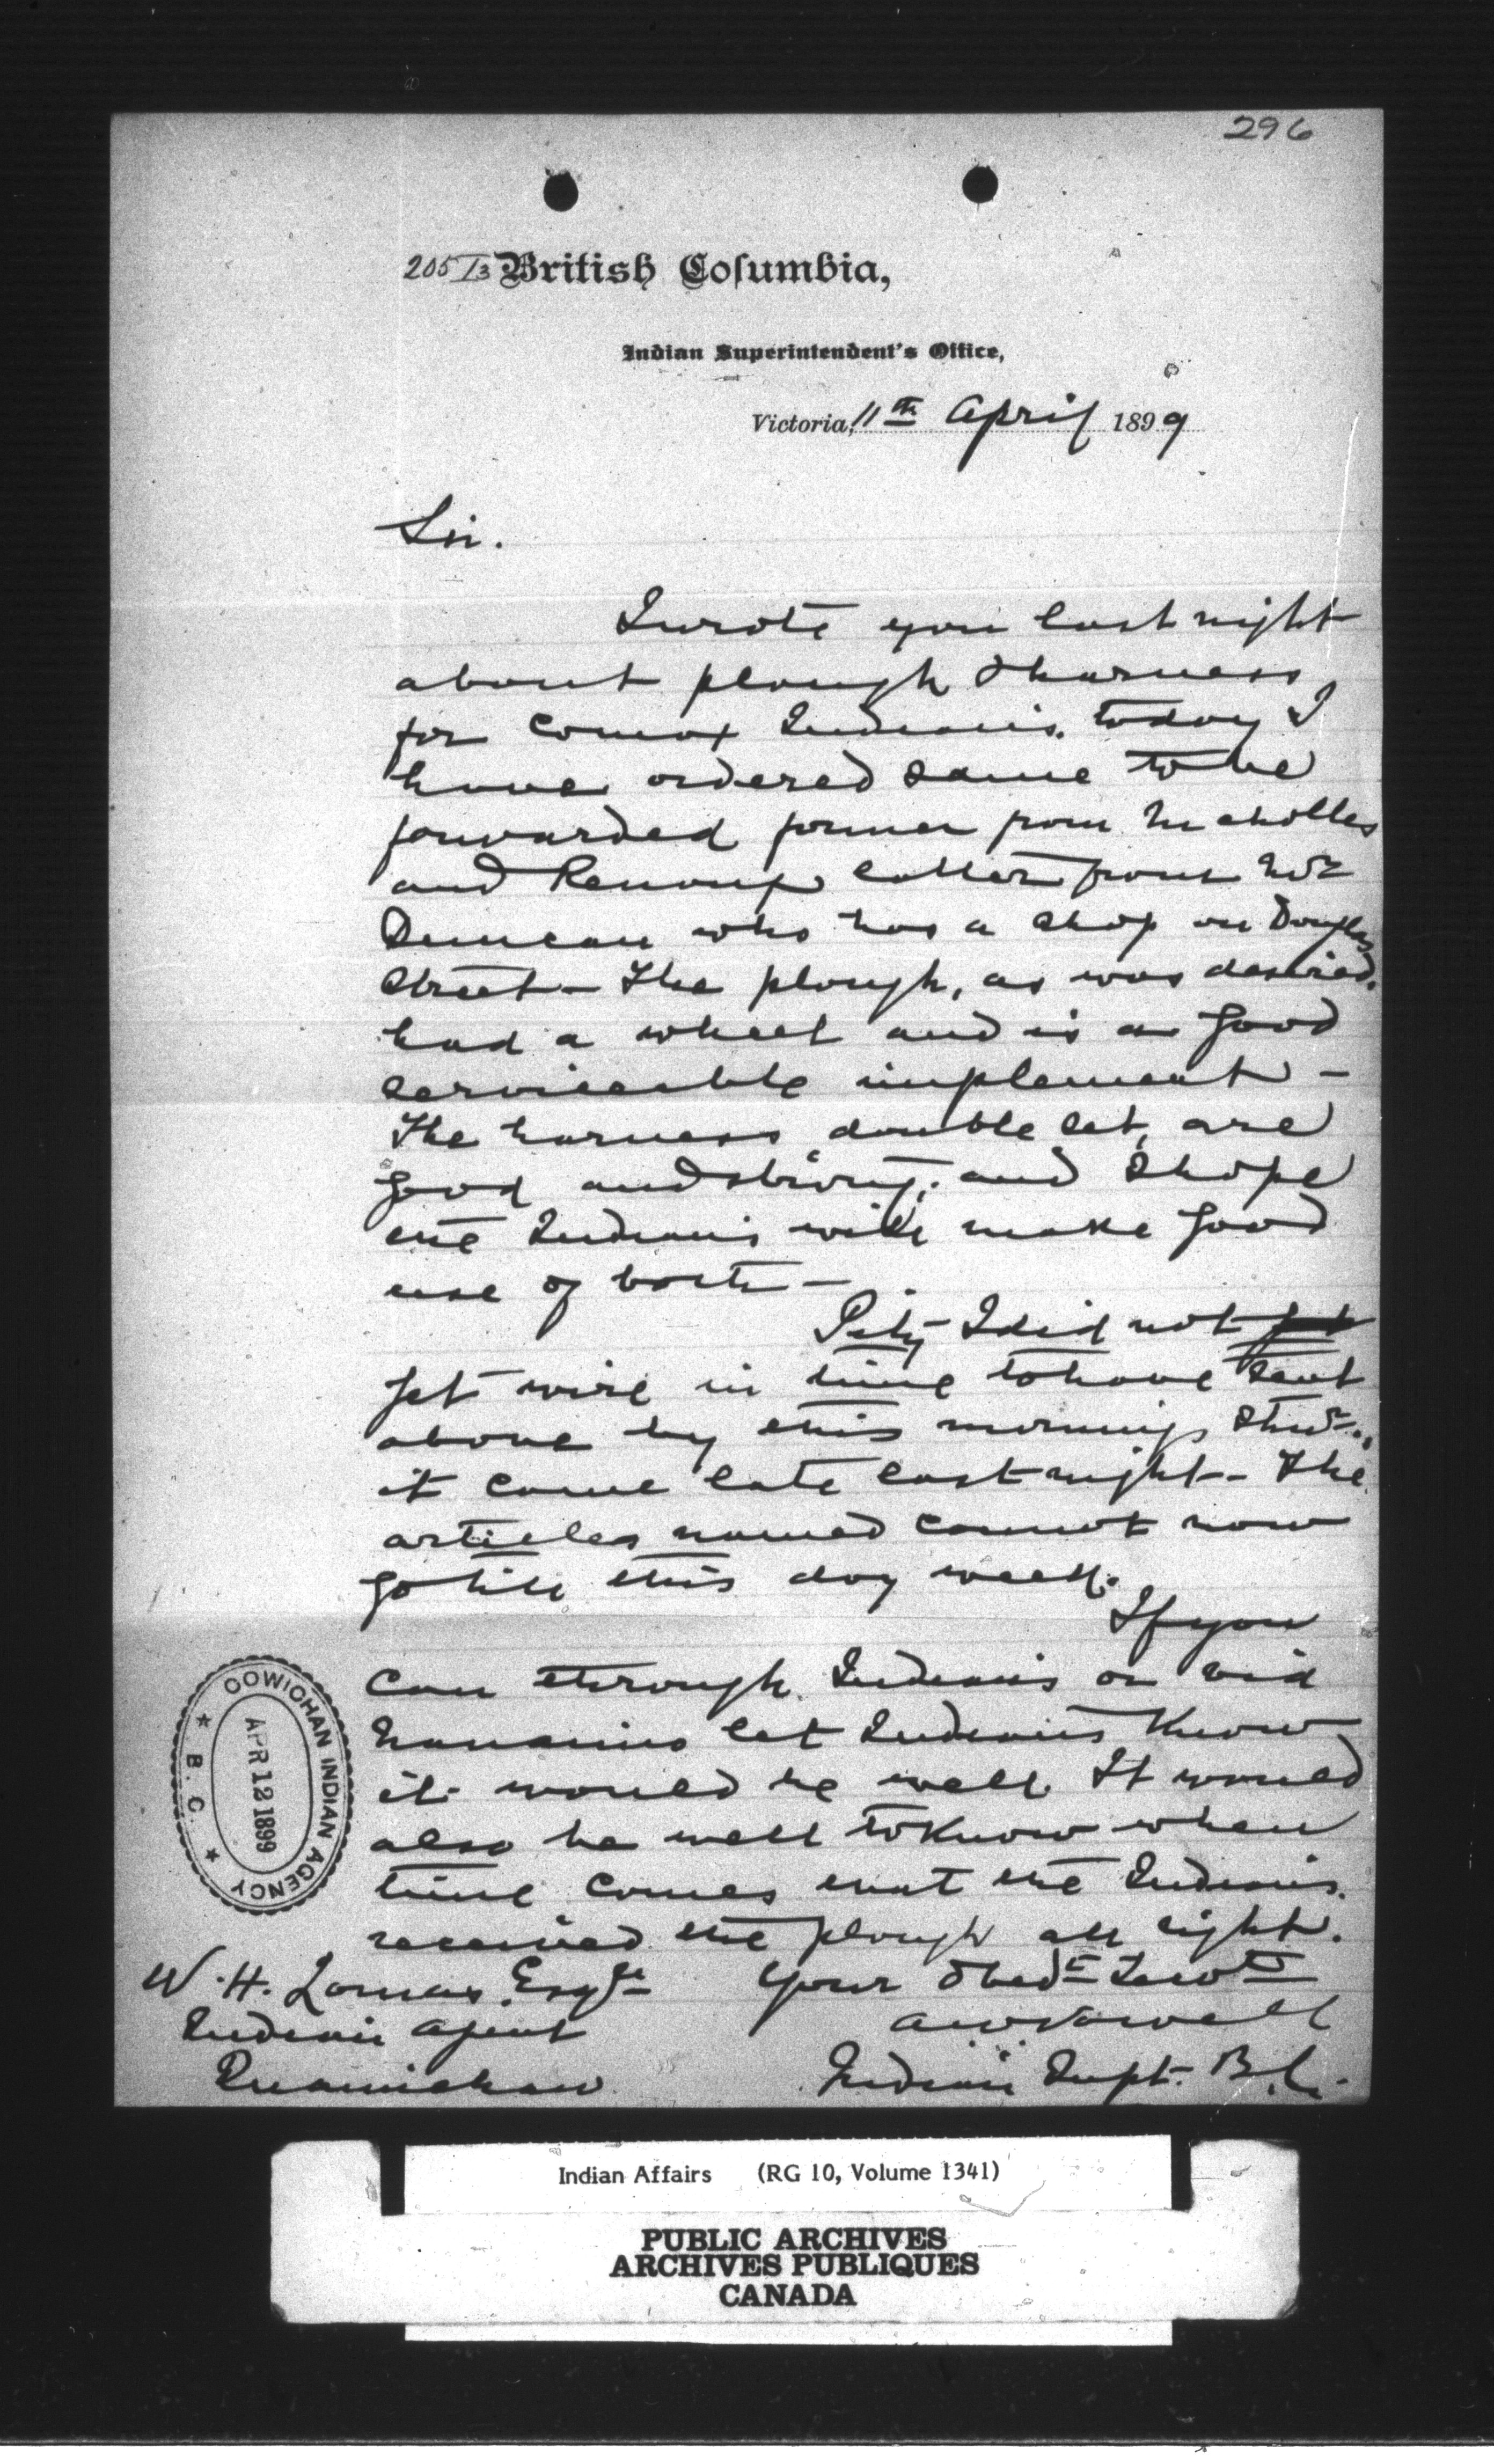 296
205/13 British Columbia,
Indian Superintendent's Office,
Victoria, 11th April 1899
Sir.
I wrote you last night
about plough & harness
for Comox Indians. today I
have ordered same to be
forwarded former from Nicholles
and Renouf latter from Mr
Duncan who has a shop on Douglas
Street – The plough, as was desired.
had a wheel and is a good
serviceable implement –
The harness double set, are
good and strong; and I hope
the Indians will make good
use of both –
Pity I did not
get wire in time to have sent
above by this mornings Stmr.,
it came late last night – The
articles named cannot now
go till this day week.
If you
can through Indians or via
Nanaimo let Indians know
it would be well. It would
also be well to know when
time comes that the Indians
received the plough all right.
Your Obedt Servt
A W Vowell
Indian Supt. B.C.
W. H. Lomas. Esqre
Indian Agent
Quamichan
COWICHAN INDIAN AGENCY
APR 12 1899
★ B. C. ★
Indian Affairs (RG 10, Volume 1341)
PUBLIC ARCHIVES
ARCHIVES PUBLIQUES
CANADA